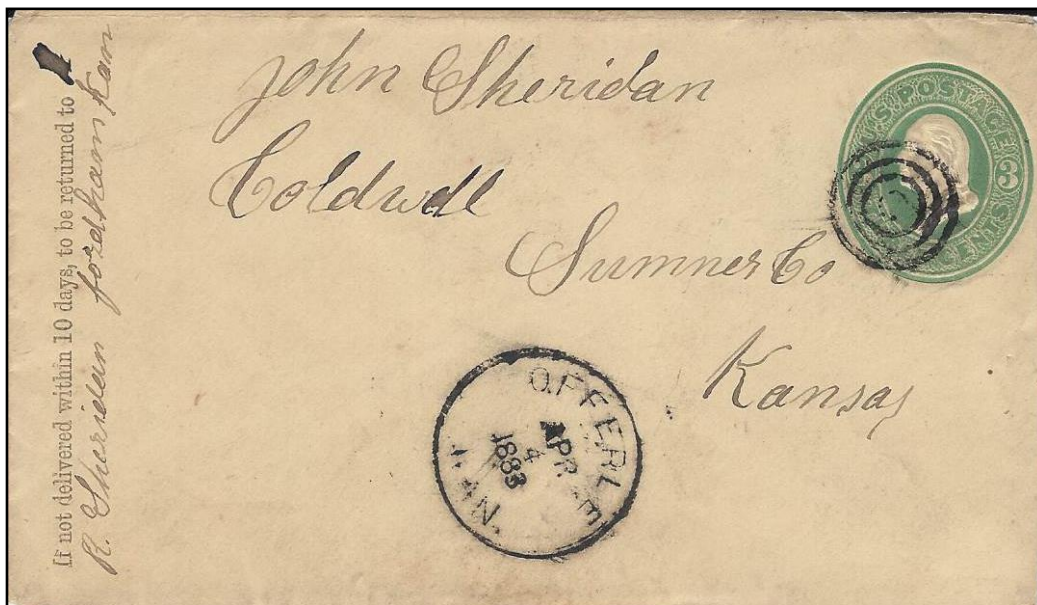 If not delivered within 10 days, to be returned to
R. Sheridan fordham Kan
John Sheridan
Coldwell
Sumner Co
Kansas
U.S. POSTAGE
3
OFFERLE
APR
4
1883